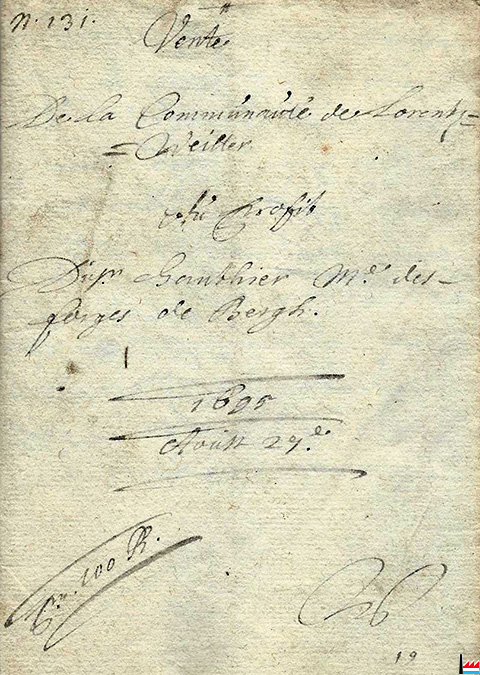 N. 131.
Vente
De la Communauté de Lorentz=
=Weiller
Au Profit
Du Sr. Gauthier Md. des-
forges de Bergh.
1695
Aoust 29.e
100 R.
19